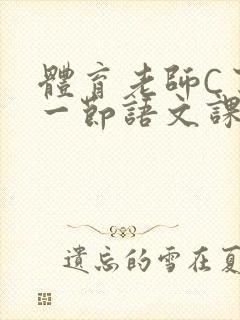 體育老師C了
一節語文課
遺忘的雪在夏